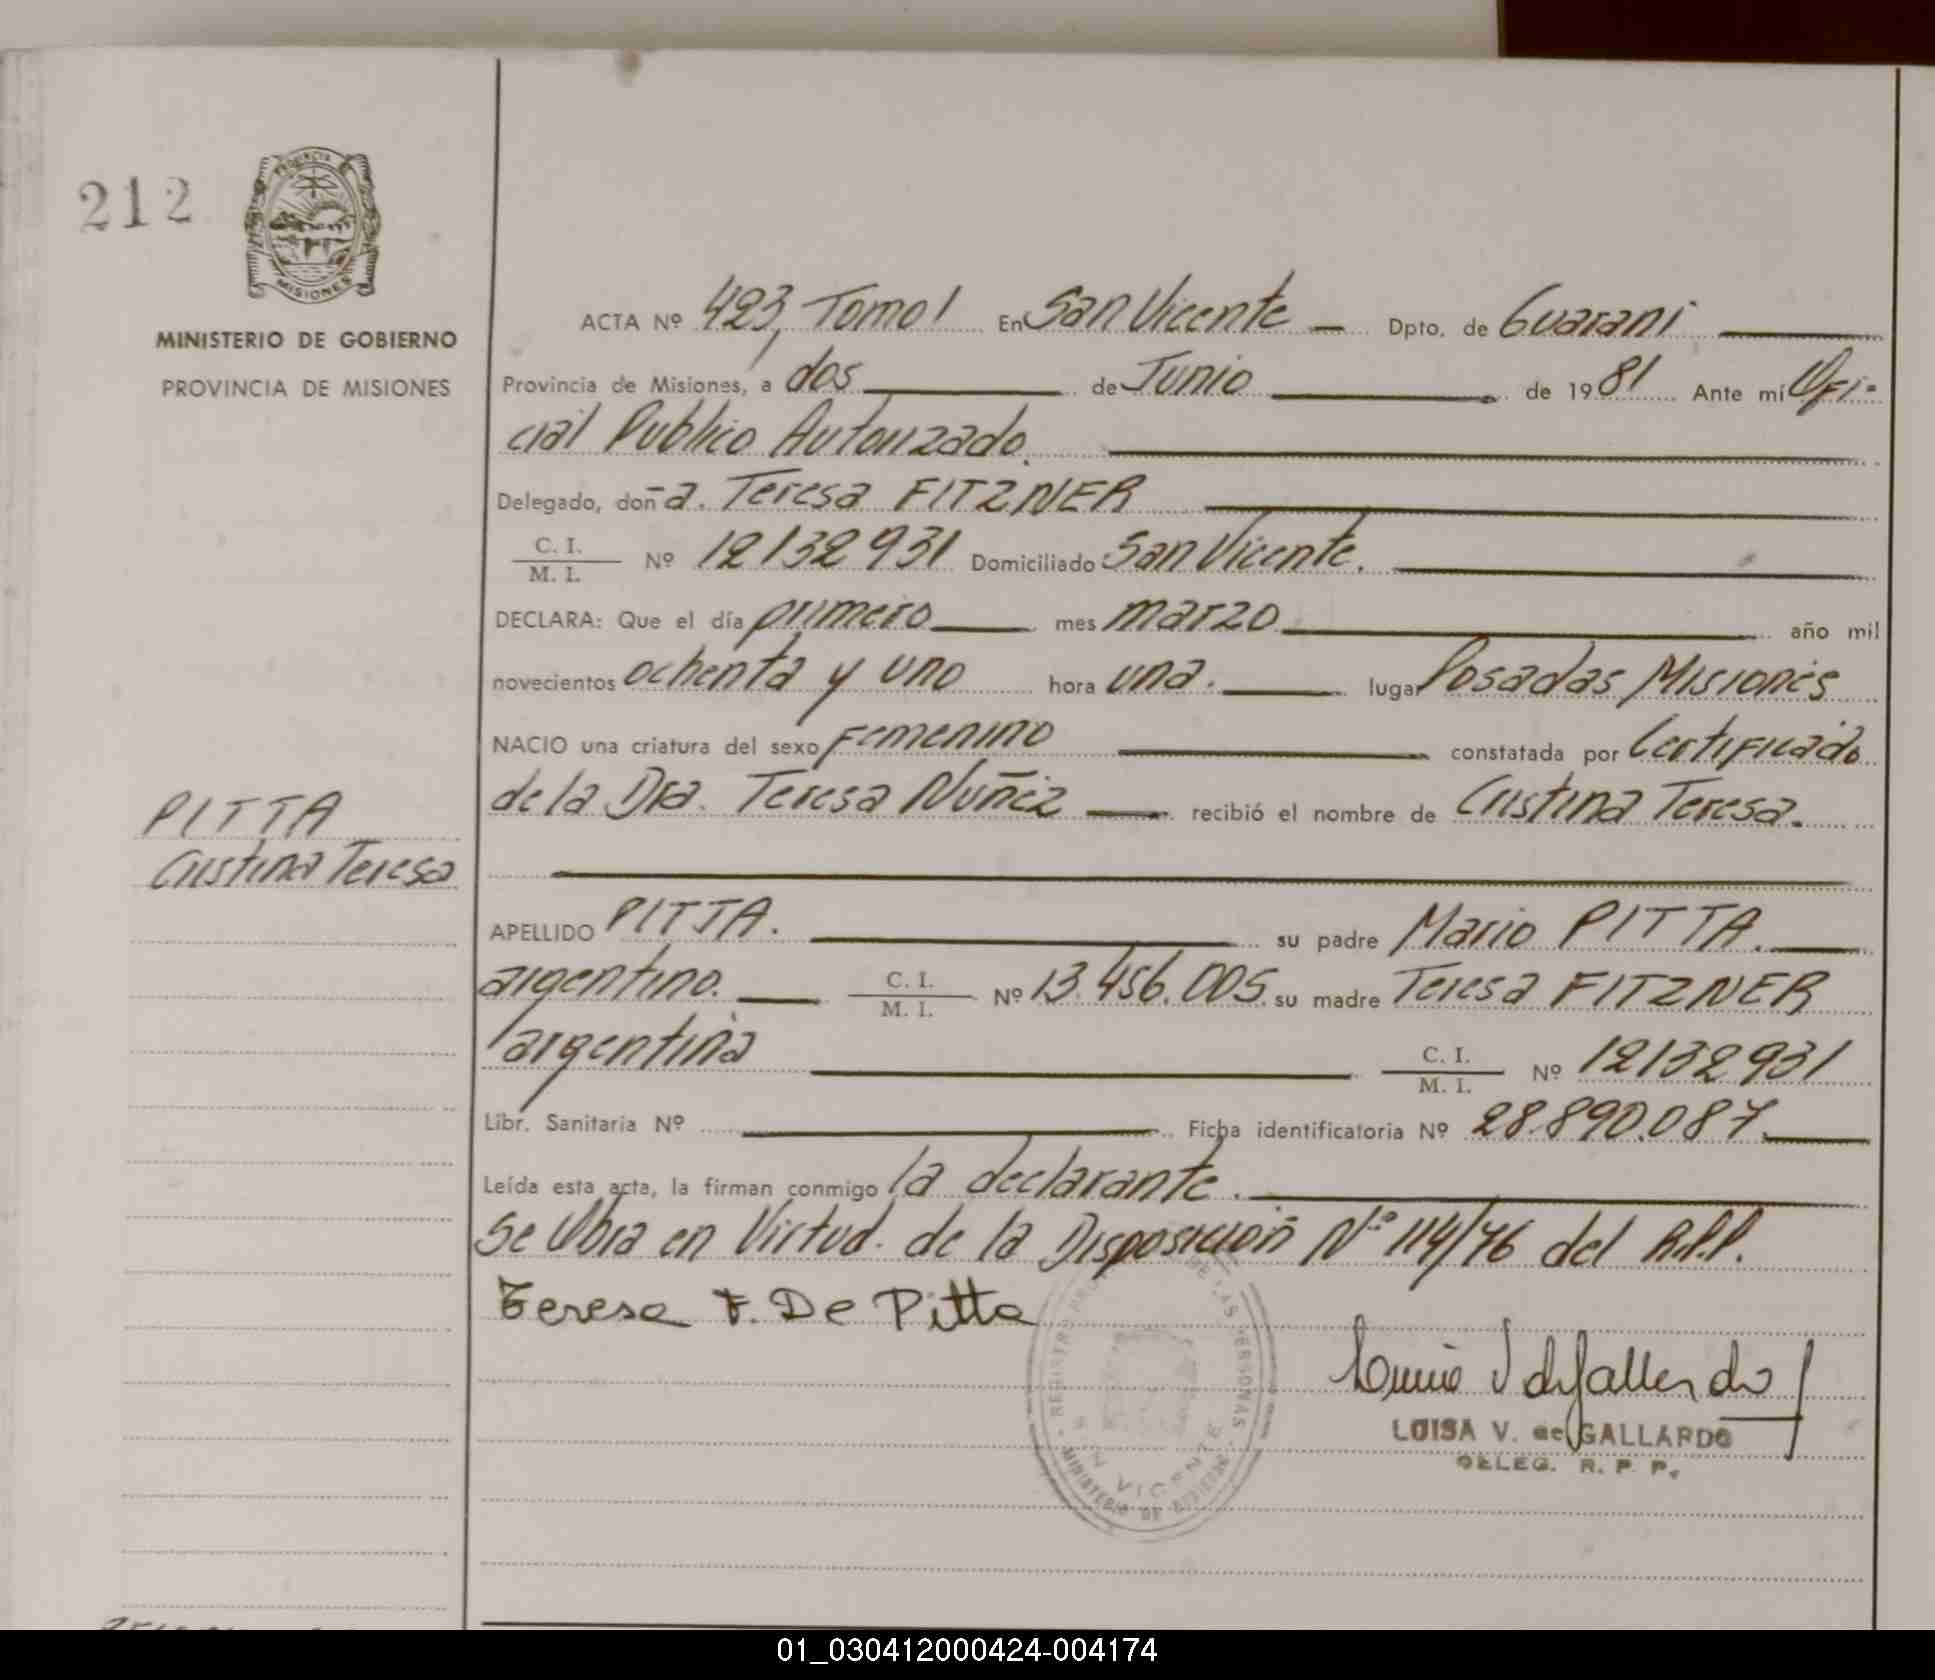 212
PROVINCIA
MISIONES
MINISTERIO DE GOBIERNO
PROVINCIA DE MISIONES
PITTA
Cristina Teresa
ACTA Nº 423, Tomo I En San Vicente Dpto. de Guarani
Provincia de Misiones, a dos de Junio de 1981 Ante mí Ofi-
cial Publico Autorizado.
Delegado, doña. Teresa FITZNER
C. I.
M. I. Nº 12132931 Domiciliado San Vicente.
DECLARA: Que el día primero mes marzo año mil
novecientos ochenta y uno hora una. lugar Posadas Misiones
NACIO una criatura del sexo Femenino constatada por Certificado
de la Dra. Teresa Nuñez recibió el nombre de Cristina Teresa.
APELLIDO PITTA. su padre Mario PITTA.
argentino. C. I.
M. I. Nº 13.456.005. su madre Teresa FITZNER
argentina C. I.
M. I. Nº 12132931
Libr. Sanitaria Nº Ficha identificatoria Nº 28.890.087
Leída esta acta, la firman conmigo la declarante.
Se Obra en Virtud. de la Disposición Nº 114/76 del R.P.P.
Teresa F. De Pitta
REGISTRO DE LAS PERSONAS
SAN VICENTE
MINISTERIO DE GOBIERNO
LUISA V. de GALLARDO
DELEG. R. P. P.
01_030412000424-004174